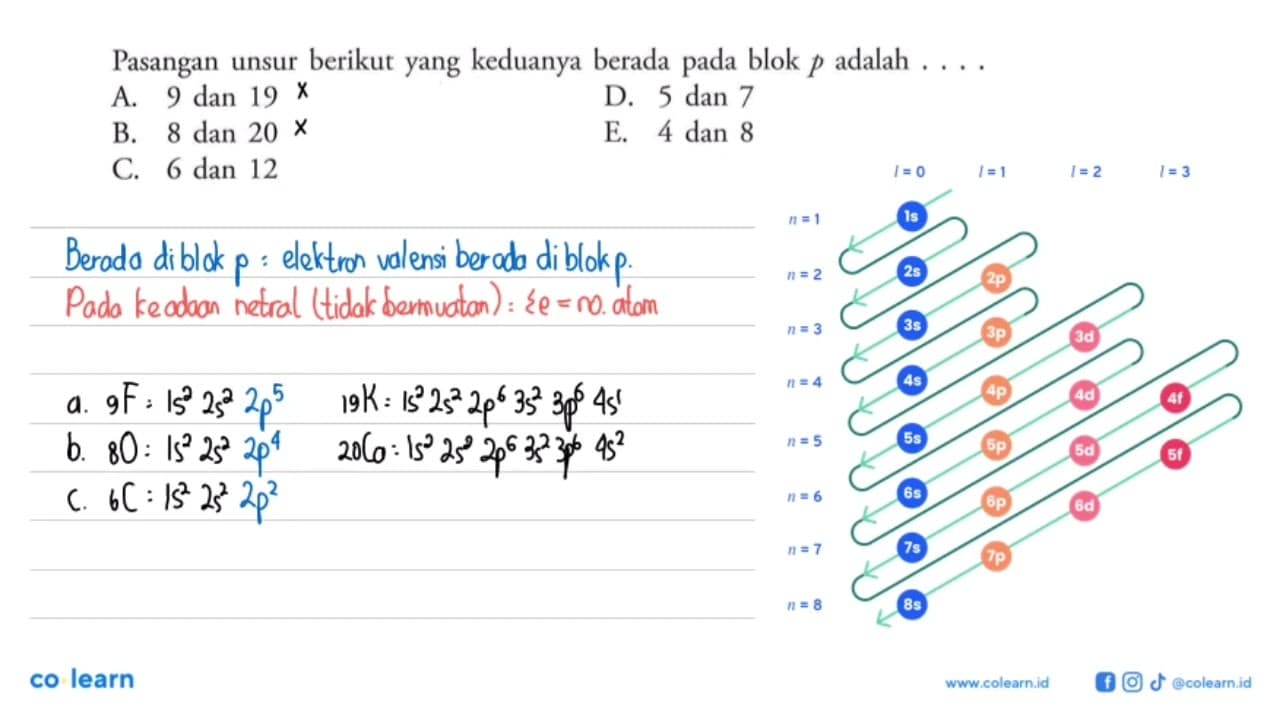 Pasangan unsur berikut yang keduanya berada pada blok p adalah . . . .
A. 9 dan 19 x
D. 5 dan 7
B. 8 dan 20 x
E. 4 dan 8
C. 6 dan 12
Berada di blok p : elektron valensi berada di blok p.
Pada keadaan netral (tidak bermuatan) : Σe = no. atom
a. 9F : 1s² 2s² 2p⁵ 19K : 1s² 2s² 2p⁶ 3s² 3p⁶ 4s¹
b. 8O : 1s² 2s² 2p⁴ 20Ca : 1s² 2s² 2p⁶ 3s² 3p⁶ 4s²
c. 6C : 1s² 2s² 2p²
l = 0 l = 1 l = 2 l = 3
n = 1 1s
n = 2 2s 2p
n = 3 3s 3p 3d
n = 4 4s 4p 4d 4f
n = 5 5s 5p 5d 5f
n = 6 6s 6p 6d
n = 7 7s 7p
n = 8 8s
co learn
www.colearn.id @colearn.id